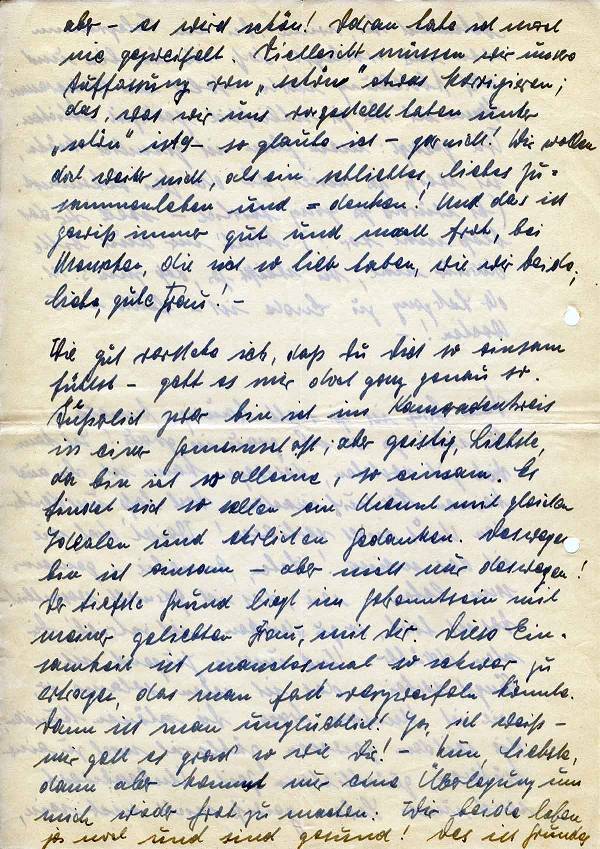 aber – es wird schön! Daran habe ich noch
nie gezweifelt. Vielleicht müssen wir unsere
Auffassung von „schön" etwas korrigieren;
das, was wir uns vorgestellt haben unter
„schön" ist's – so glaube ich – gar nicht! Wir wollen
doch weiter nicht, als ein schlichtes, liebes Zu=
sammenleben und = denken! Und das ist
gewiß immer gut und macht froh, bei
Menschen, die sich so lieb haben, wie wir beide,
liebe, gute Frau! –
Wie gut verstehe ich, daß Du Dich so einsam
fühlst – geht es mir doch ganz genau so.
Äußerlich zwar bin ich im Kameradenkreis
in einer Gemeinschaft; aber geistig, Liebste,
da bin ich so alleine, so einsam. Es
findet sich so selten ein Mensch mit gleichen
Idealen und ehrlichen Gedanken. Deswegen
bin ich einsam – aber nicht nur deswegen!
Der tiefste Grund liegt im Getrenntsein mit
meiner geliebten Frau, mit Dir. Diese Ein=
samkeit ist manchesmal so schwer zu
ertragen, das man fast verzweifeln könnte.
Dann ist man unglücklich! Ja, ich weiß –
mir geht es grad so wie Dir! – Nun, Liebste,
dann aber kommt mir eine Überlegung um
mich wieder froh zu machen: Wir beide leben
ja noch und sind gesund! Das ist Grundes